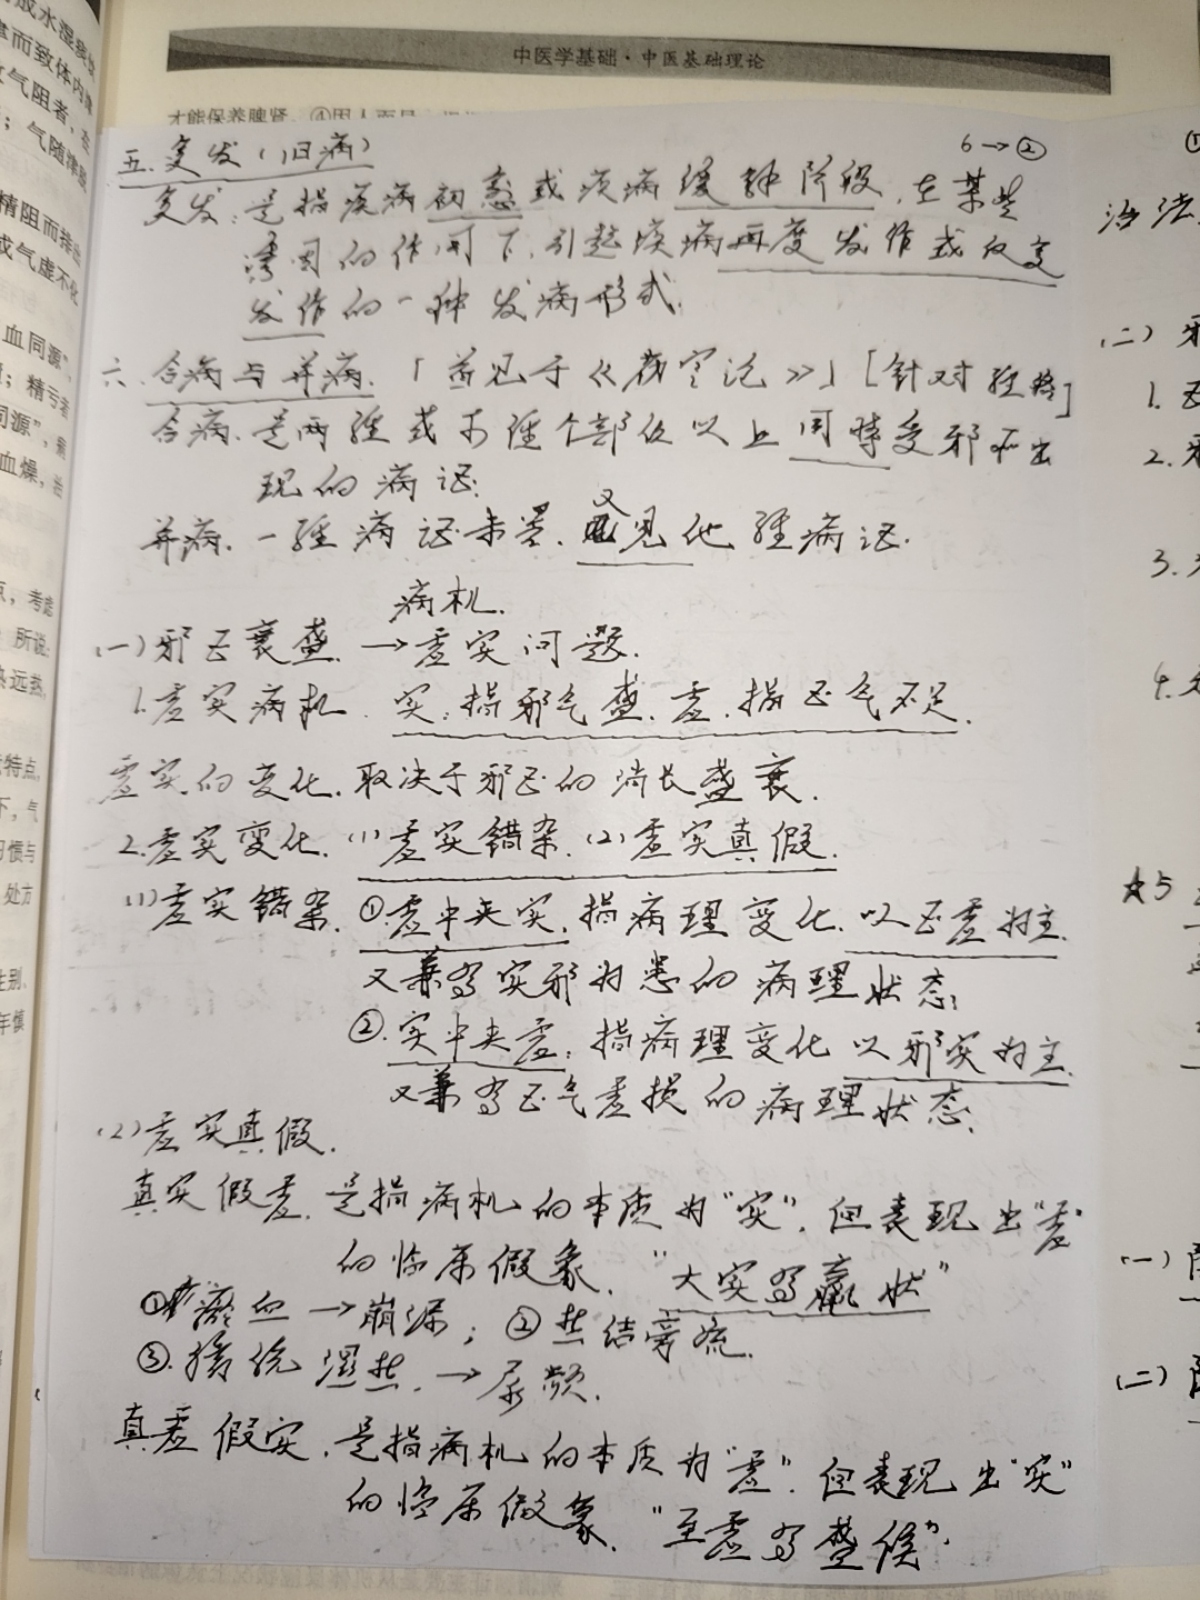 中医学基础·中医基础理论
才能保养脾肾。④因人而异
五.复发(旧病) 6→②
复发:是指疾病初愈或疾病缓解阶段,在某些
诱因的作用下,引起疾病再度发作或反复
发作的一种发病形式.
六.合病与并病.「首见于《伤寒论》」[针对经络]
合病.是两经或两经个部位以上同时受邪所出
现的病证.
并病.一经病证未罢.又见他经病证.
病机.
(一)邪正衰盛.→虚实问题.
1.虚实病机.实:指邪气盛.虚.指正气不足.
虚实的变化.取决于邪正的消长盛衰.
2.虚实变化.(1)虚实错杂.(2)虚实真假.
(1)虚实错杂.①虚中夹实.指病理变化.以正虚为主.
又兼写实邪为患的病理状态;
②.实中夹虚:指病理变化以邪实为主.
又兼写正气虚损的病理状态.
(2)虚实真假.
真实假虚.是指病机的本质为“实”.但表现出“虚”
的临床假象.“大实写羸状”
①瘀血→崩漏;②热结旁流.
③.膀胱湿热.→尿频.
真虚假实.是指病机的本质为“虚”.但表现出“实”
的临床假象.“至虚写盛候”.
成水湿痰饮
而致体内津
气阻者,
;气随津脱
精阻而排出
或气虚不化
血同源”,
;精亏者
同源”,
血燥,
点,考虑
所说:
热远热,
特点,
下,气
习惯与
处方
生别、
年慎
治法
(二)邪
1.正
2.邪
3.
4.
★5
(一)阴
(二)阴